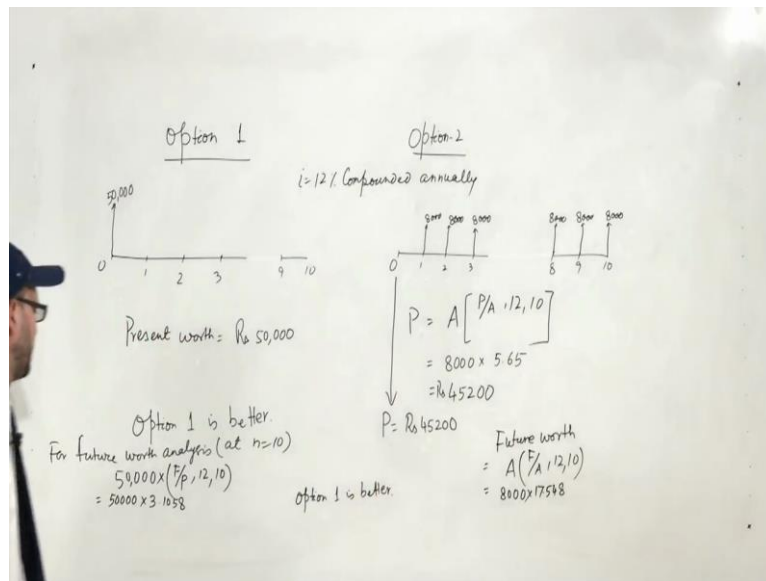 Option 1
Option-2
i=12%. Compounded annually
50,000
0 1 2 3 9 10
8000 8000 8000 8000 8000 8000
0 1 2 3 8 9 10
Present worth = Rs 50,000
P = A [P/A, 12, 10]
= 8000 x 5.65
=Rs 45200
P= Rs 45200
Option 1 is better.
For future worth analysis (at n=10)
50,000x(F/P, 12, 10)
= 50000 x 3.1058
Option 1 is better.
Future worth
= A(F/A, 12, 10)
= 8000x17548